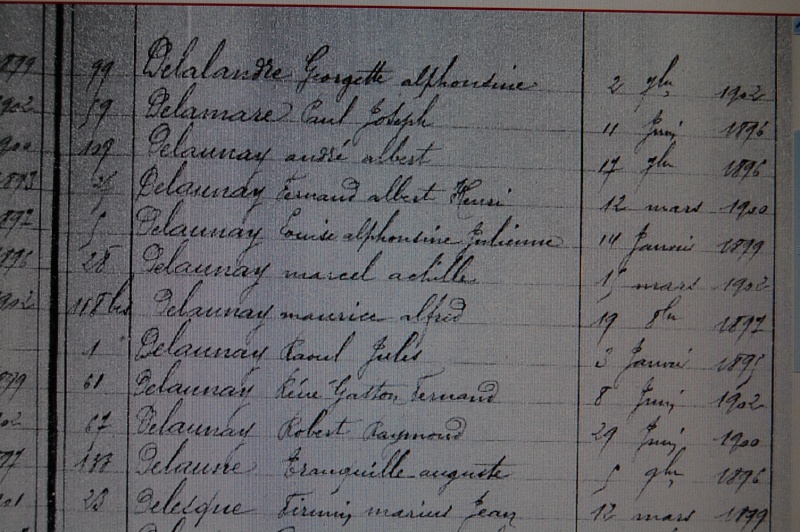 1899 99 Delalandre Georgette alphonsine 2 9bre 1902
1902 59 Delamare Paul Joseph 11 Juin 1896
1900 109 Delaunay andré albert 17 9bre 1896
1893 Delaunay Fernand albert Henri 12 mars 1900
1897 5 Delaunay Louise alphonsine Julienne 14 Janvier 1899
1896 28 Delaunay marcel achille 15 mars 1902
1902 118 bis Delaunay maurice alfred 19 8bre 1897
1 Delaunay Raoul Jules 3 Janvier 1895
1899 61 Delaunay Réné Gaston Fernand 8 Juin 1902
67 Delaunay Robert Raymond 29 Juin 1900
133 Delaune Tranquille auguste 5 9bre 1896
23 Delesque Firmin marius Jean 12 mars 1899